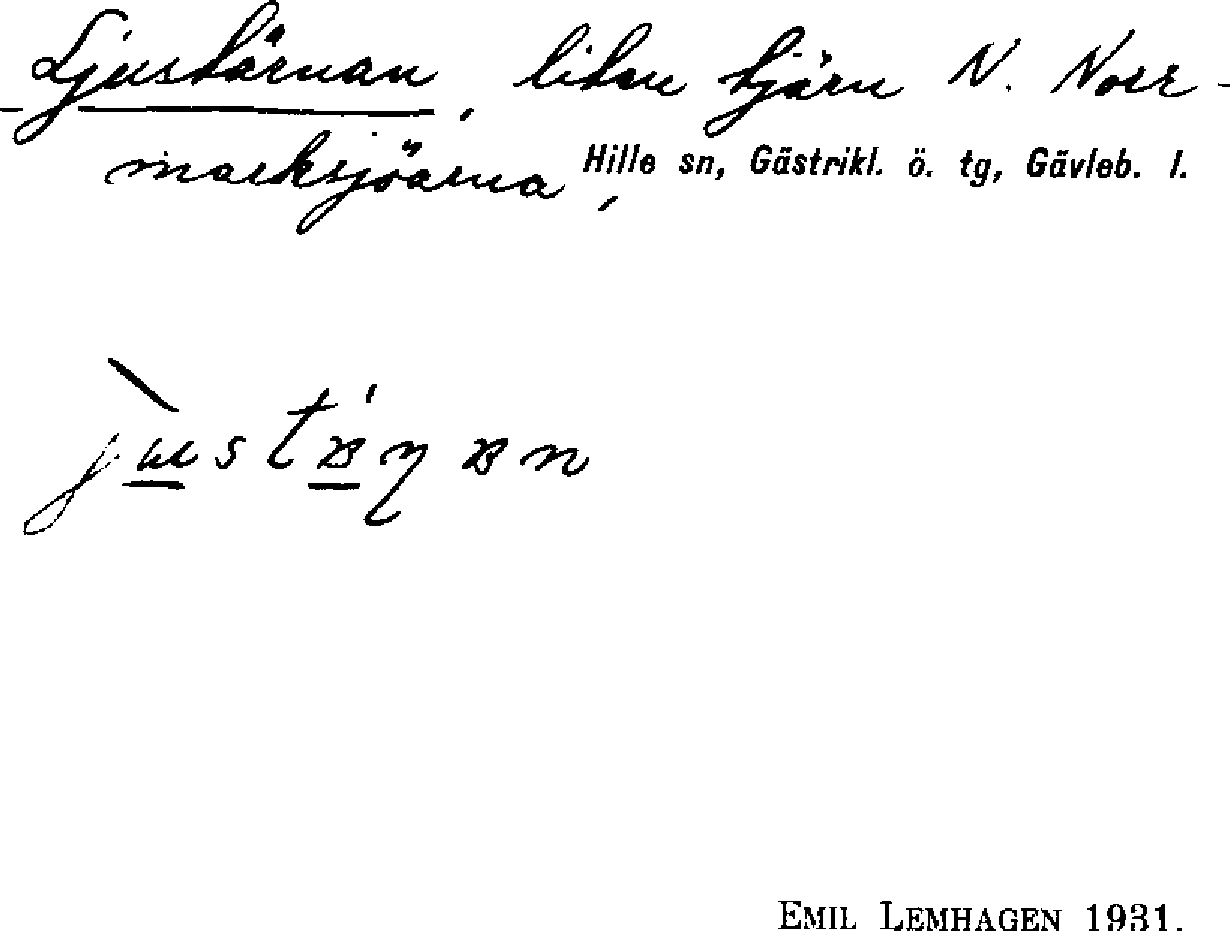 Ljustärnan, liten tjärn N. Norr-
marksjöarna, Hille sn, Gästrikl. ö. tg, Gävleb. l.
EMIL LEMHAGEN 1931.